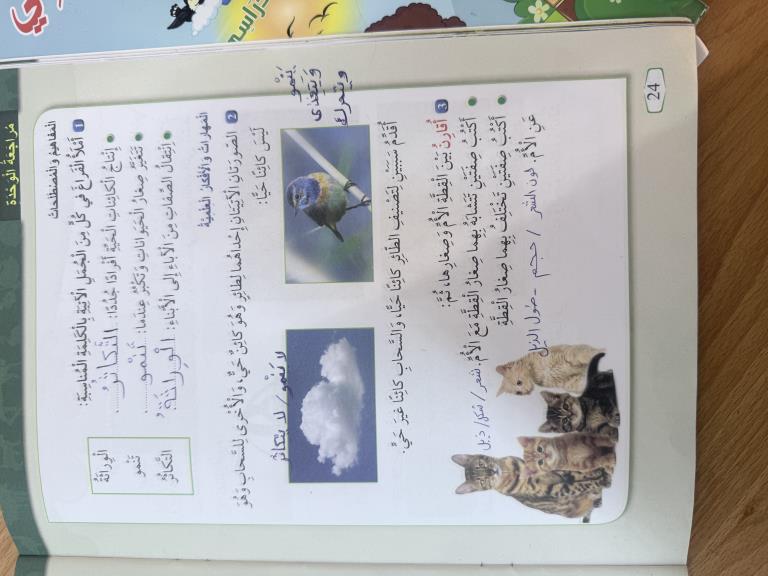 مُراجَعَةُ الْوَحْدَةِ
المَفاهيمُ وَالمُصْطَلَحاتُ
1 أَمْلَأُ الْفَراغَ في كُلٍّ مِنَ الْجُمَلِ الْآتِيَةِ بِالْكَلِمَةِ الْمُناسِبَةِ:
إِنْتاجُ الْكائِناتِ الْحَيَّةِ أَفْرادًا جُدُدًا: التَّكاثُرُ
تَتَغَيَّرُ صِغارُ الْحَيَواناتِ وَتَكْبُرُ عِنْدَما: تَنْمو
اِنْتِقالُ الصِّفاتِ مِنَ الْآباءِ إِلى الْأَبْناءِ: الْوِراثَةُ
الْوِراثَةُ
تَنْمو
التَّكاثُرُ
المَهاراتُ وَالأَفْكارُ العِلْمِيَّةُ
2 الصّورَتانِ الْآتِيَتانِ إِحْداهُما لِطائِرٍ وَهُوَ كائِنٌ حَيٌّ، وَالْأُخْرى لِلسَّحابِ وَهُوَ
لَيْسَ كائِنًا حَيًّا:
يَنْمو
وَيَتَغَذّى
ويتحرك
لا يَنْمو / لا يتكاثر
أُقَدِّمُ سَبَبَيْنِ لِتَصْنيفِ الطّائِرِ كائِنًا حَيًّا، وَالسَّحابِ كائِنًا غَيْرَ حَيٍّ.
3 أُقارِنُ بَيْنَ الْقِطَّةِ الْأُمِّ وَصِغارِها، ثُمَّ:
أَكْتُبُ صِفَتَيْنِ تَتَشابَهُ بِهِما صِغارُ الْقِطَّةِ مَعَ الْأُمِّ. شعر / شكل / ذيل
أَكْتُبُ صِفَتَيْنِ تَخْتَلِفُ بِهِما صِغارُ الْقِطَّةِ
عَنِ الْأُمِّ. لون الشعر / حجم - طول الذيل
24